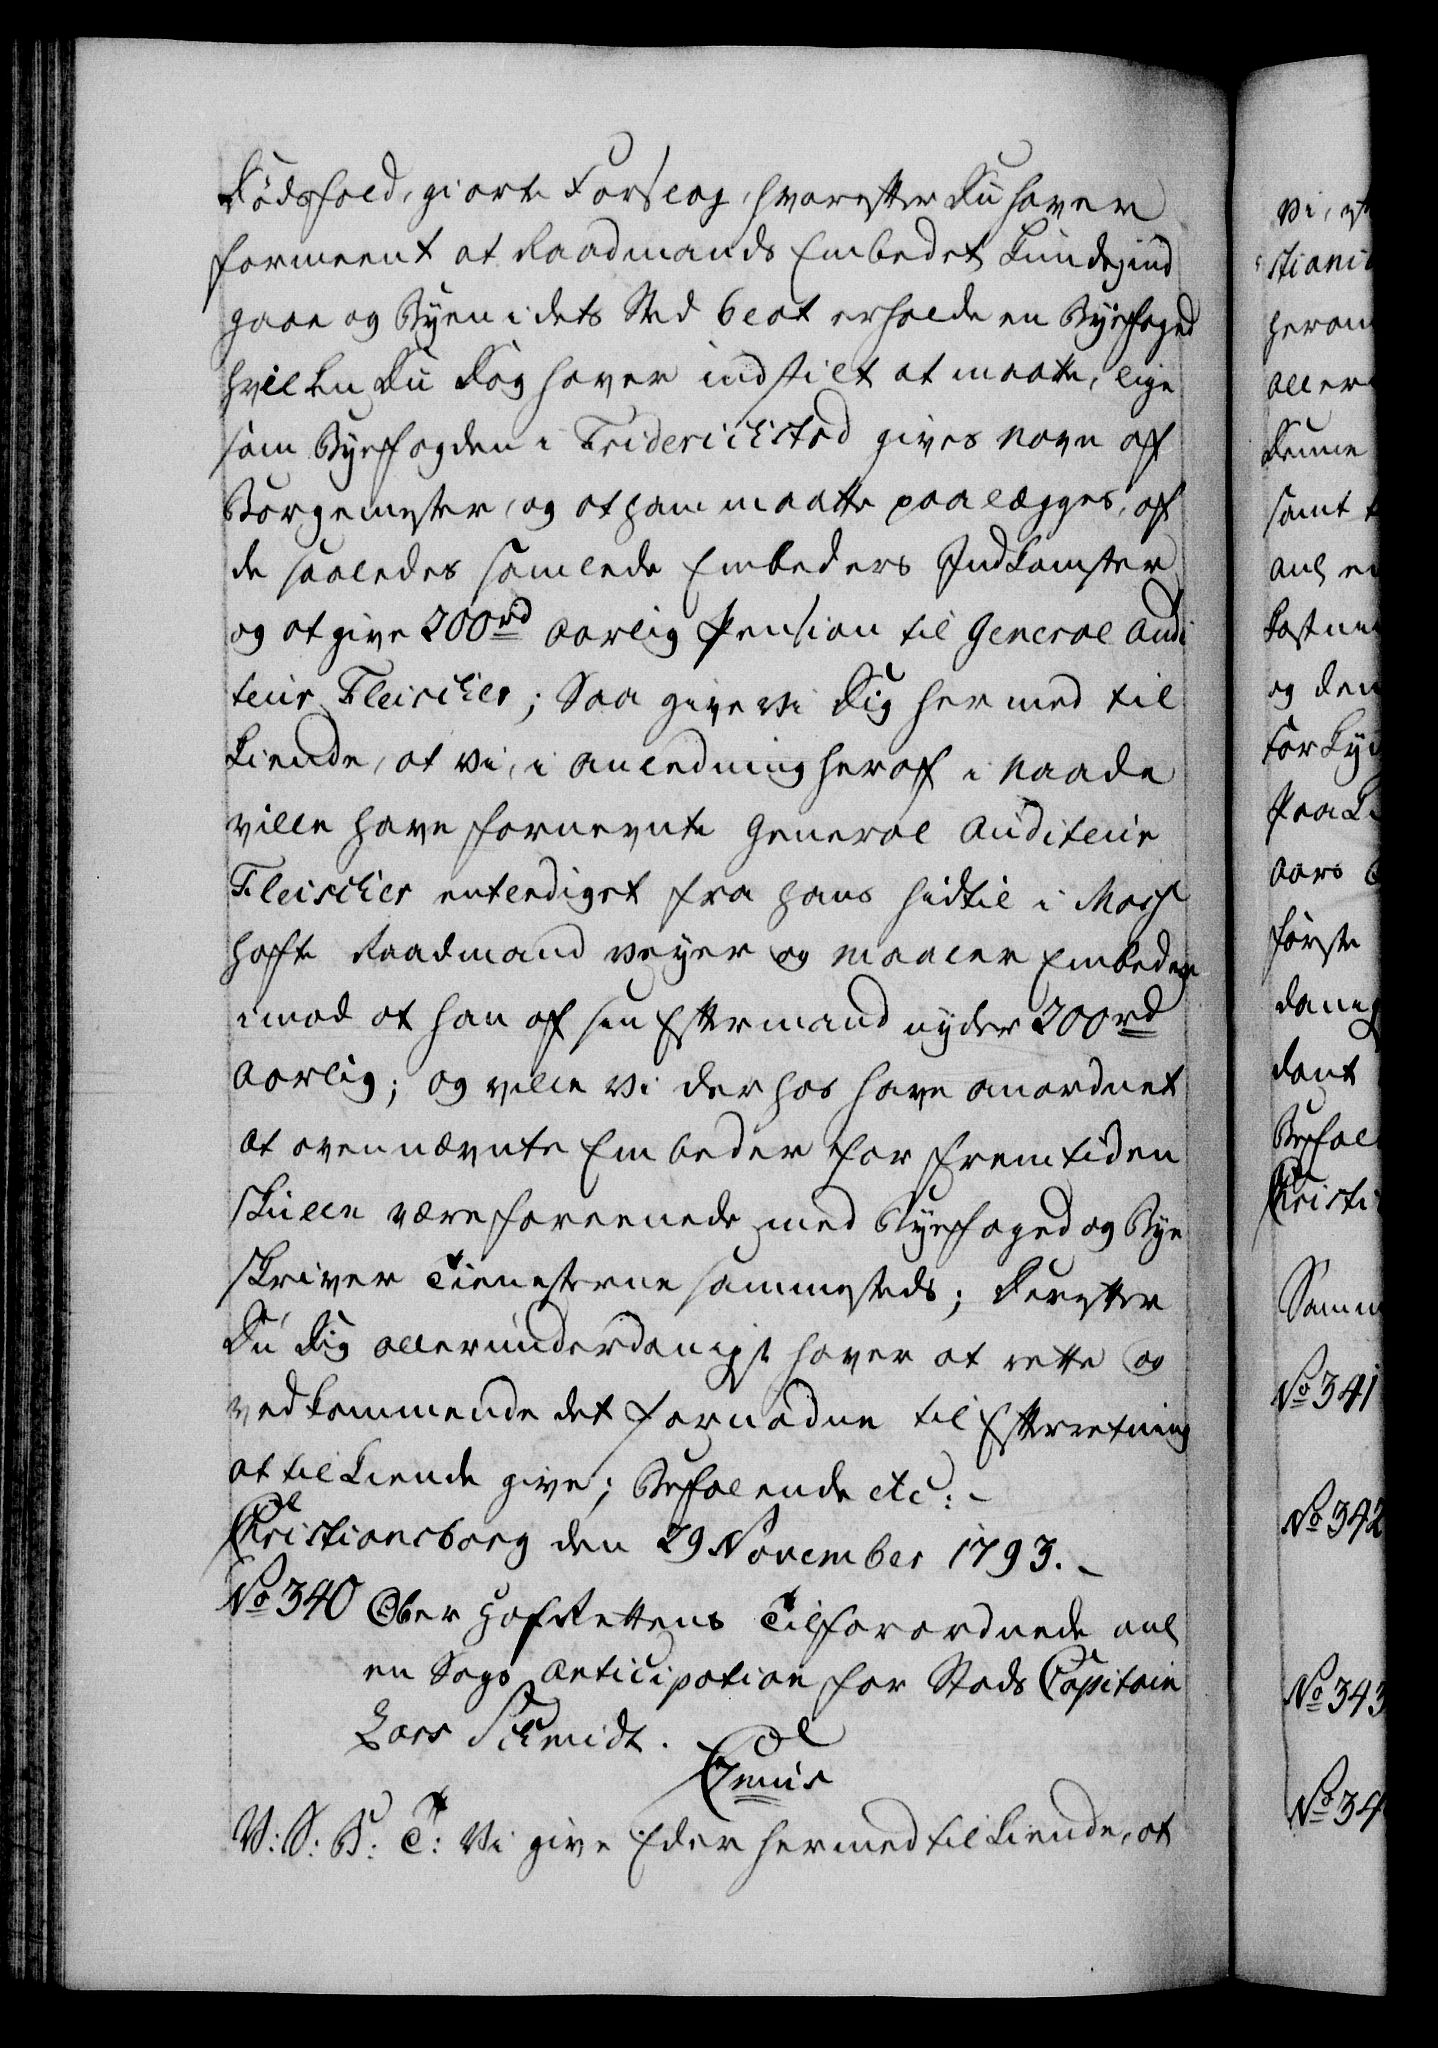 Dødsfald, giorte Forslag, hvorefter Du haver
formeent at Raadmands Embedet kunde ind
gaae og Byen i dets Sted blot erholde en Byefoged
hvilken Du dog haver indstilt at maatte, lige
som Byefogden i Friderichstad gives Navn af
Borgemester, og at ham maatte paalægges, af
de saaledes samlede Embeders Indkomster
og at give 200rd aarlig Pension til General Audi
teur Fleischer; Saa give Vi Dig hermed til
kiende, at Vi, i Anledning heraf i Naade
ville have fornevnte General Auditeur
Fleischer entlediget fra hans hidtil i Moss
hafte Raadmand Veyer og Maaler Embeder
imod at han af sin Eftermand nyder 200rd
Aarlig; og ville Vi derhos have anordnet
at ovennævnte Embeder for Fremtiden
skulle være foreenede med Byefoged og Bye
skriver Tienesterne sammesteds; Derefter
Du Dig allerunderdanigst haver at rette og
vedkommende det fornødne til Efterretning
at tilkiende give; Befalende etc: -
Christiansborg den 29 November 1793. -
No 340 Ober Hof Rettens Tilforordnede anl
en Sags Anticipation for Stads Capitain
Lars Schmidt.
V: S: B: T: Vi give Eder hermed tilkiende, at
Vi, 
stiani
aller
Denne
samt
og den
Aars
første
dant
Befal
Christi
Samm
No 341
No 342
No 343
No 34